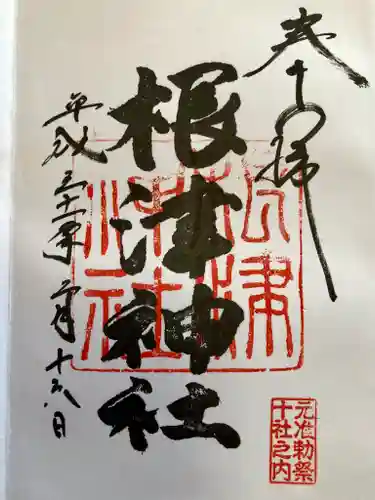 奉拝
根津神社
平成三十一年二月十六日
元准勅祭
十社之内